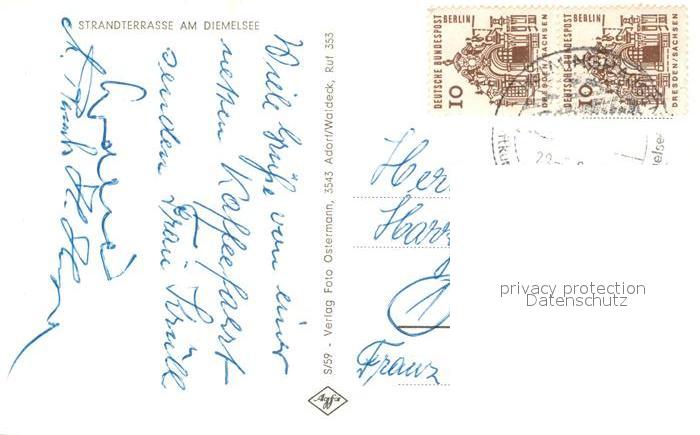 STRANDTERRASSE AM DIEMELSEE
Viele Grüße von einer
netten Kaffeefahrt
senden Frau Krüll
S/59 - Verlag Foto Ostermann, 3543 Adorf/Waldeck, Ruf 353
Agfa
DEUTSCHE BUNDESPOST
BERLIN
10
DRESDEN/SACHSEN
DEUTSCHE BUNDESPOST
BERLIN
10
DRESDEN/SACHSEN
Her
Harr
Franz
privacy protection
Datenschutz